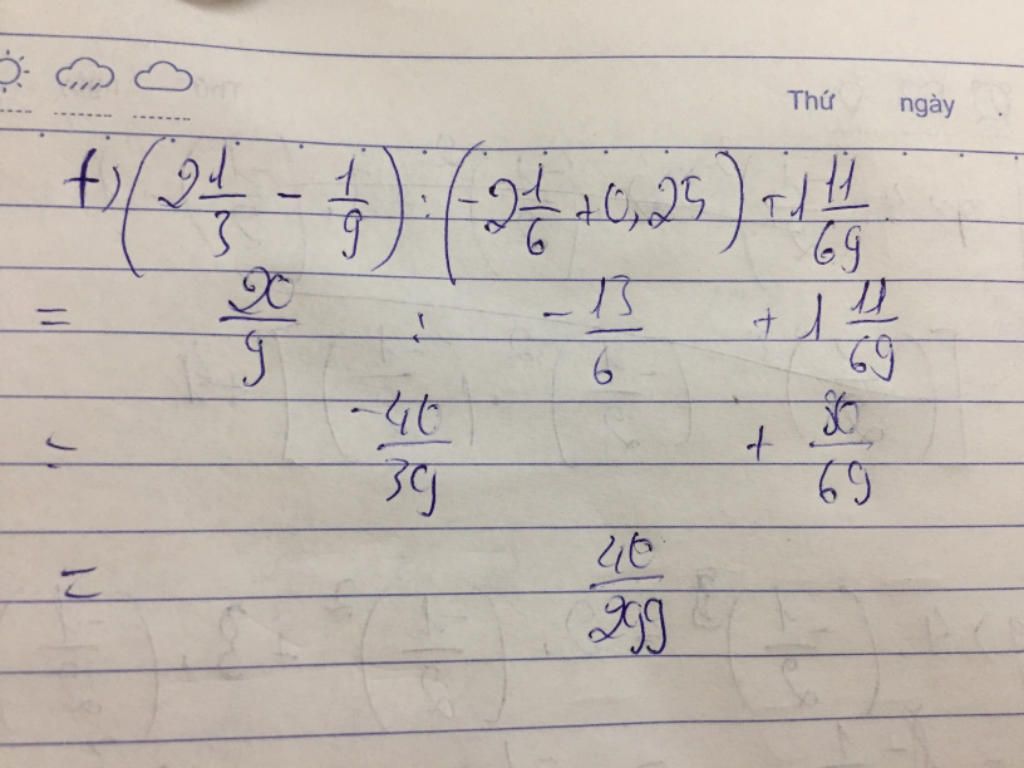 Thứ ngày
f) (2 1/3 - 1/9) : (-2 1/6 + 0,25) + 1 11/69
= 20/9 : - 13/6 + 1 11/69
= -40/39 + 80/69
= 40/299